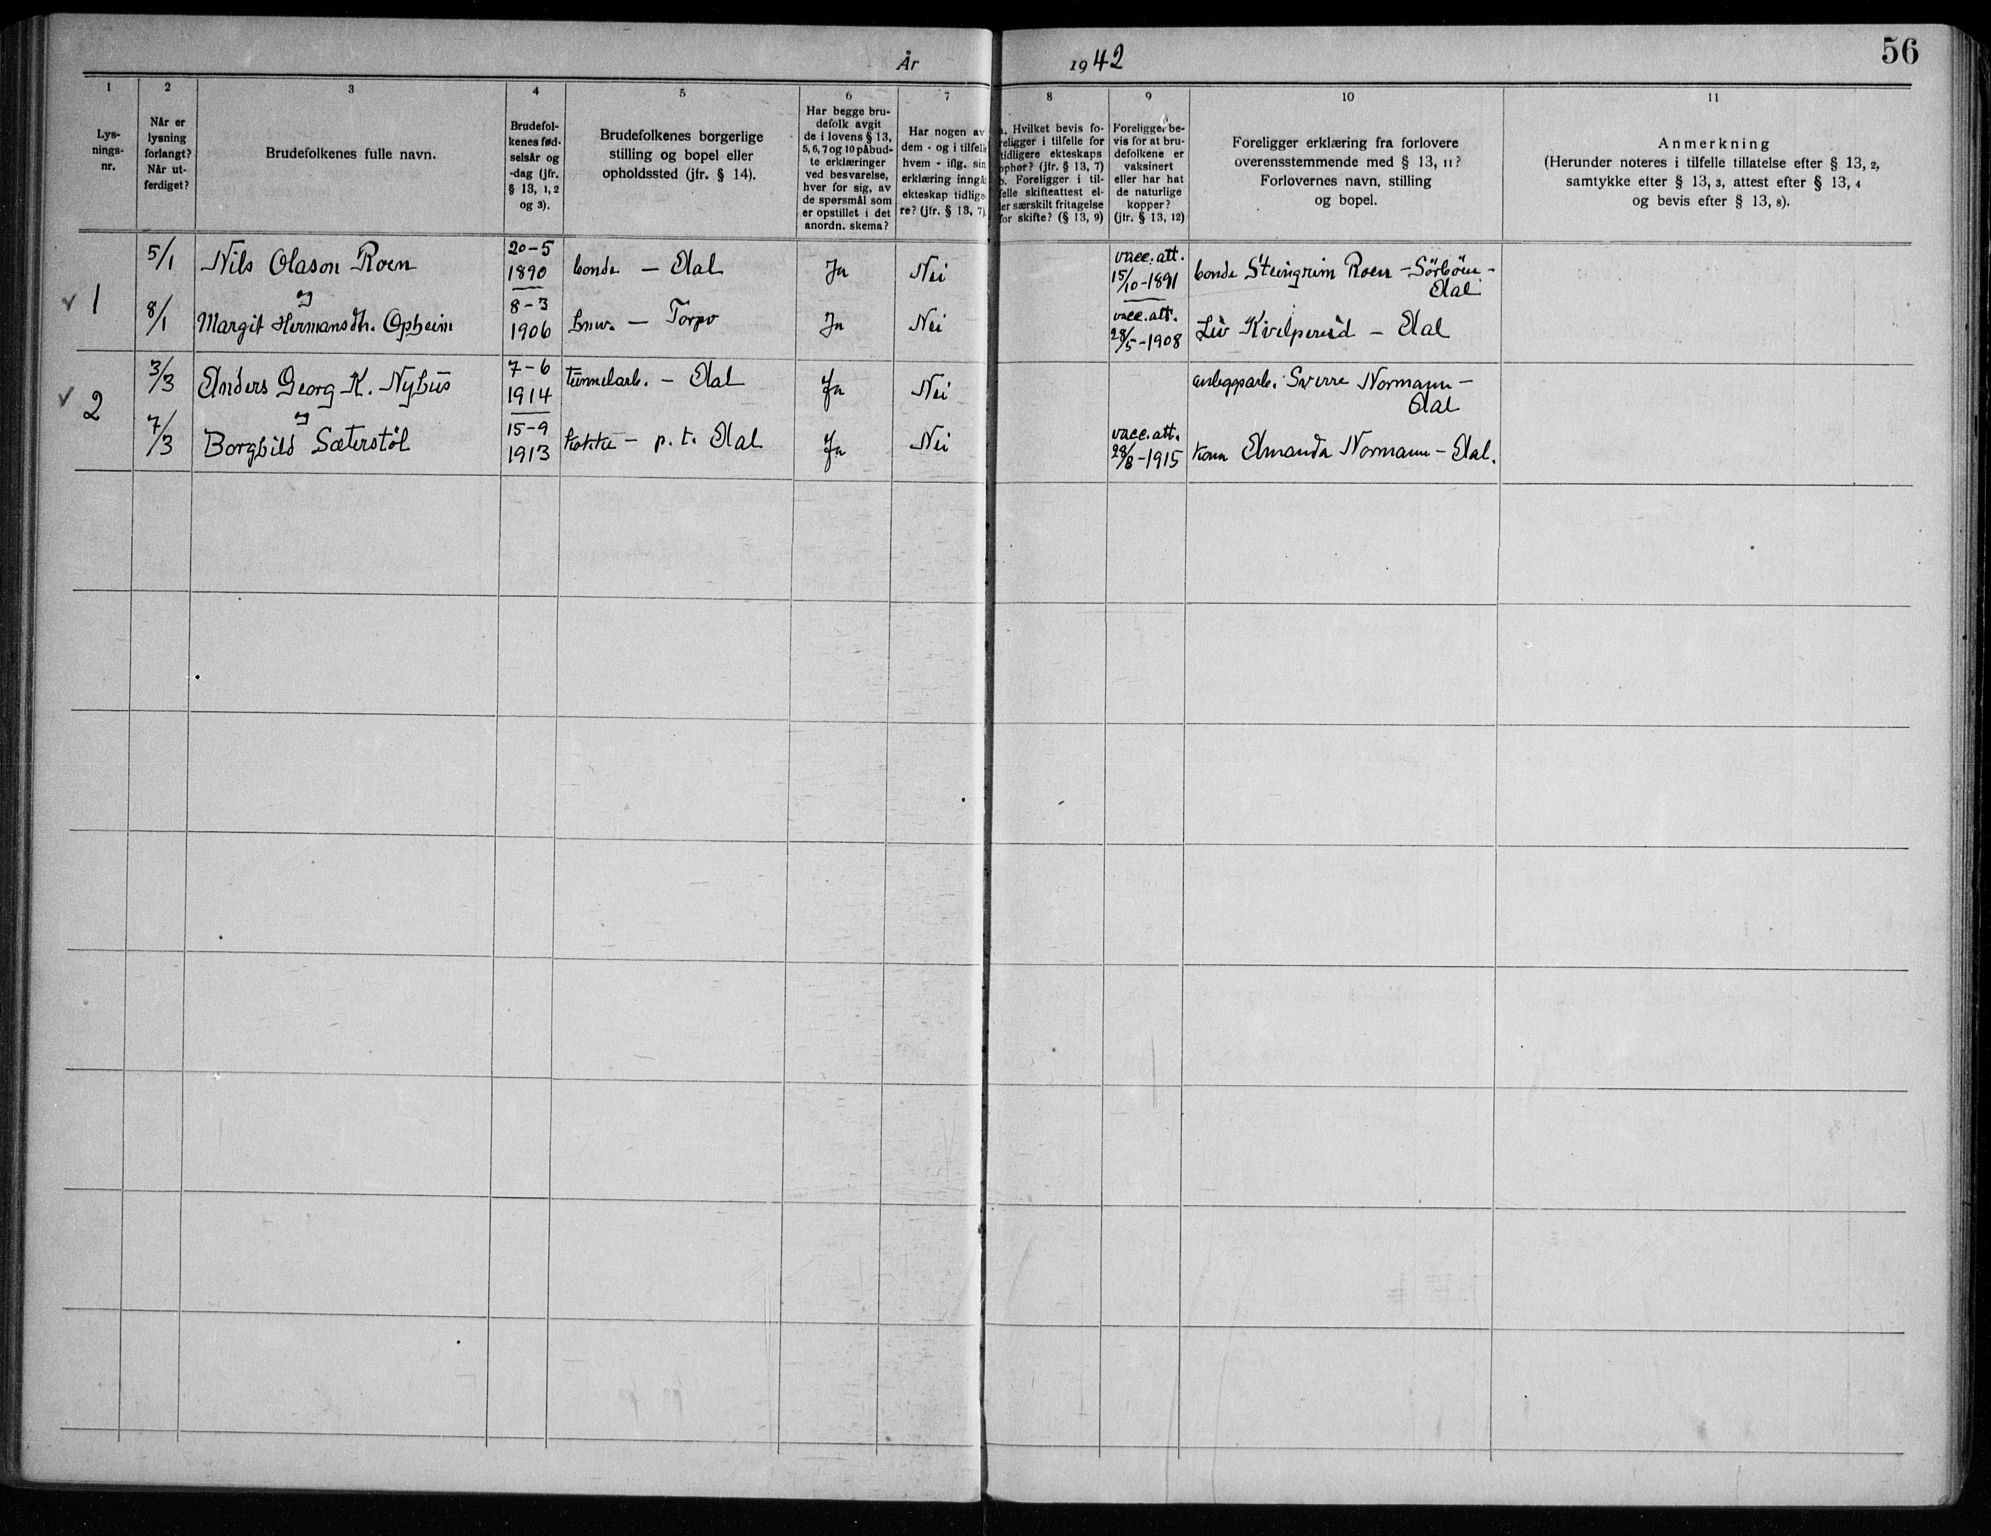 År 1942
56
1 2 3 4 5 6 7 8 9 10 11
Lys-
nings-
nr.
Når er
lysning
forlangt?
Når ut-
ferdiget?
Brudefolkenes fulle navn.
Brudefol-
kenes fød-
selsår og
-dag (jfr.
§ 13, 1, 2
og 3).
Brudefolkenes borgerlige
stilling og bopel eller
opholdssted (jfr. § 14).
Har begge bru-
defolk avgit
de i lovens § 13,
5, 6, 7 og 10 påbud-
te erklæringer
ved besvarelse,
hver for sig, av
de spørsmål som
er opstillet i det
anordn. skema?
Har nogen av
dem - og i tilfelle
hvem - iflg. sin
erklæring inngå
ekteskap tidlige-
re? (jfr. § 13, 7)
a. Hvilket bevis fo-
religger i tilfelle for
tidligere ekteskaps
ophør? (jfr. § 13, 7)
b. Foreligger i til-
felle skifteattest el-
ler særskilt fritagelse
for skifte? (§ 13, 9)
Foreligger be-
vis for at bru-
defolkene er
vaksinert
eller har hat
de naturlige
kopper?
(jfr. § 13, 12)
Foreligger erklæring fra forlovere
overensstemmende med § 13, 11?
Forlovernes navn, stilling
og bopel.
Anmerkning
(Herunder noteres i tilfelle tillatelse efter § 13, 2,
samtykke efter § 13, 3, attest efter § 13, 4
og bevis efter § 13, 8).
✓ 1
5/1 Nils Olason Roen 20-5 1890 bonde — Aal Ja Nei vacc. att. 15/10-1891 bonde Steingrim Roen - Sørbøen -
Aal
og
8/1 Margit Hermansdh. Opheim 8-3 1906 — Torpo Ja Nei vacc. att. 28/5-1908 Liv Kvelprud — Aal
✓ 2
3/3 Anders Georg K. Nyhus 7-6 1914 tunnelarb. — Aal Ja Nei anleggsarb. Sverre Normann —
Aal
og
7/3 Borghild Sæterstøl 15-9 1913 kokke — p. t. Aal Ja Nei vacc. att. 28/8-1915 kona Amanda Normann — Aal.